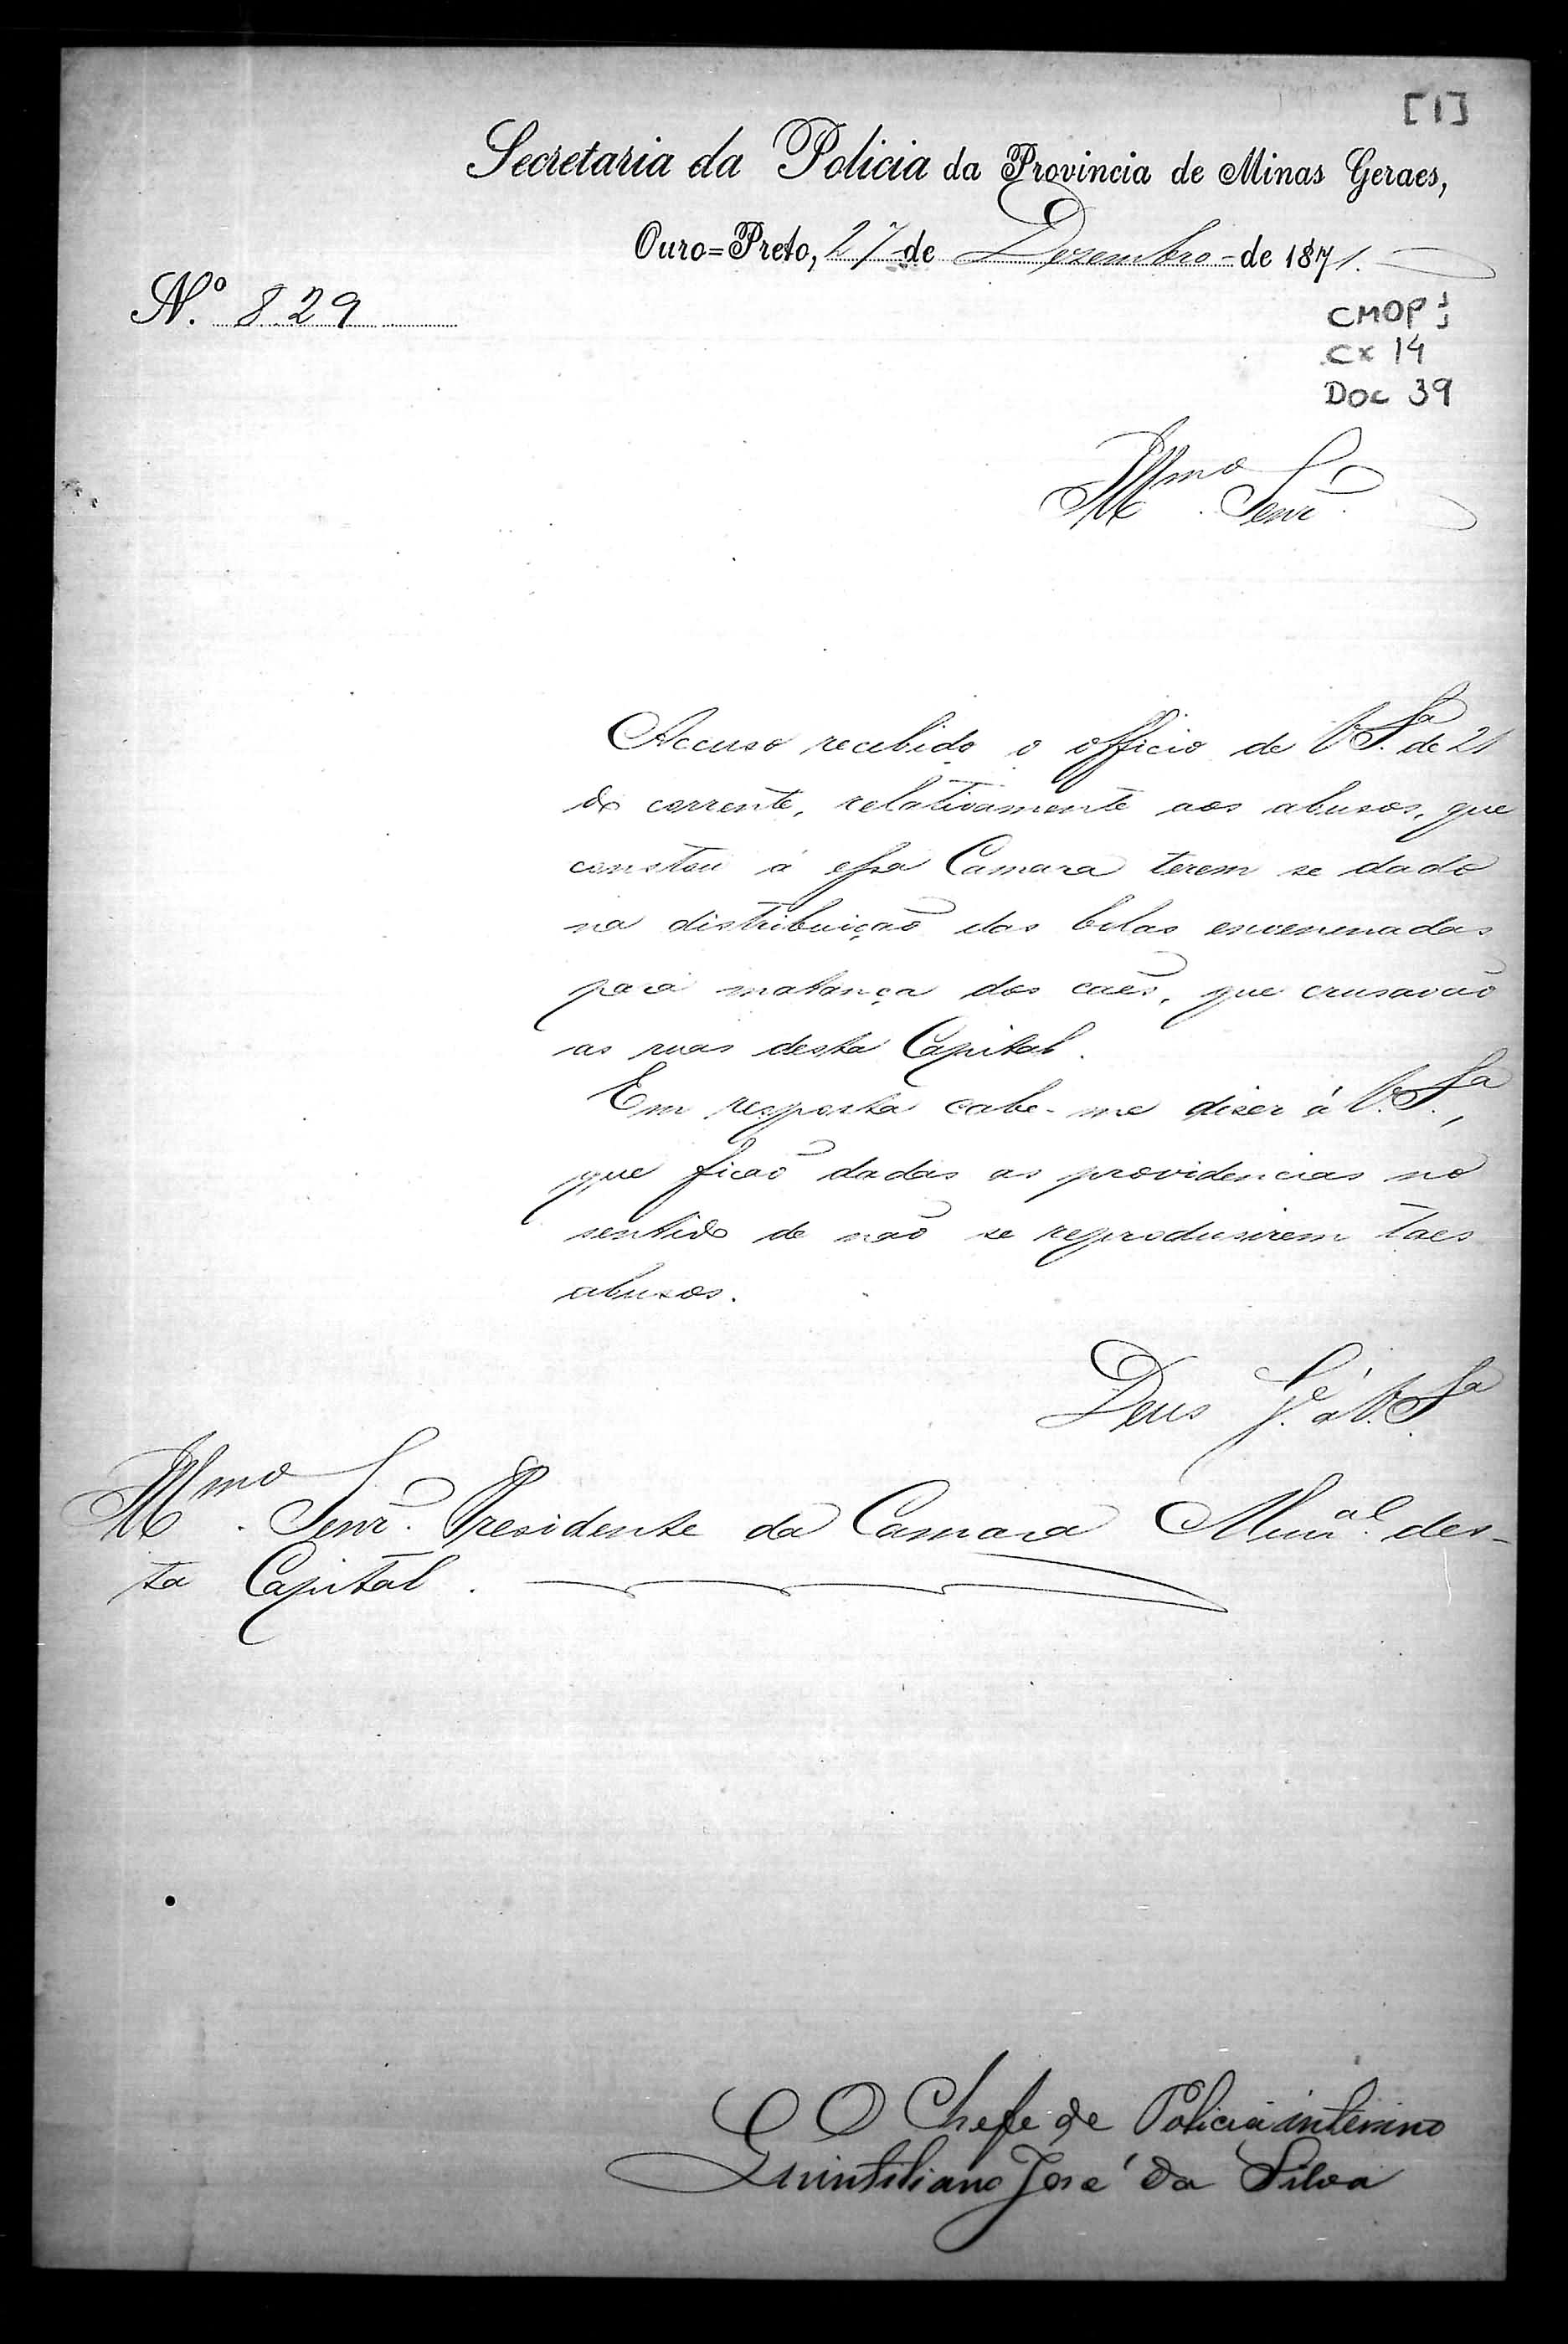 [1]
Secretaria da Policia da Provincia de Minas Geraes,
Ouro=Preto, 27 de Dezembro de 1871.
N.º 829
CMOP
Cx 14
Doc 39
Illmo. Senr.
Accuso recebido o officio de V.Sa. de 21
do corrente, relativamente aos abusos, que
constou á essa Camara terem se dado
na distribuição das bolas envenenadas
para matança dos cães, que crusavão
as ruas desta Capital.
Em resposta cabe-me diser á V.Sa.,
que ficão dadas as providencias no
sentido de não se reprodusirem taes
abusos.
Deus Ge. á V.Sa.
Illmo. Senr. Presidente da Camara Munal. des-
ta Capital.
O Chefe de Policia interino
Quintiliano José da Silva